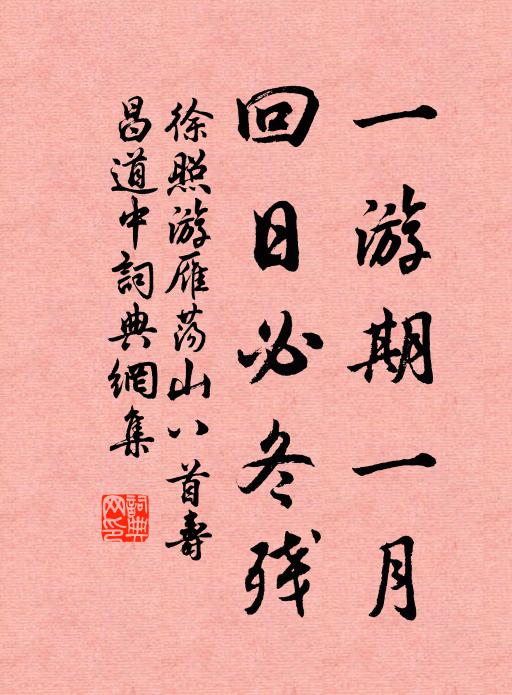 一游期一月
回日必冬残
徐照游雁荡山八首寿
昌道中詞典網集
詞典网印